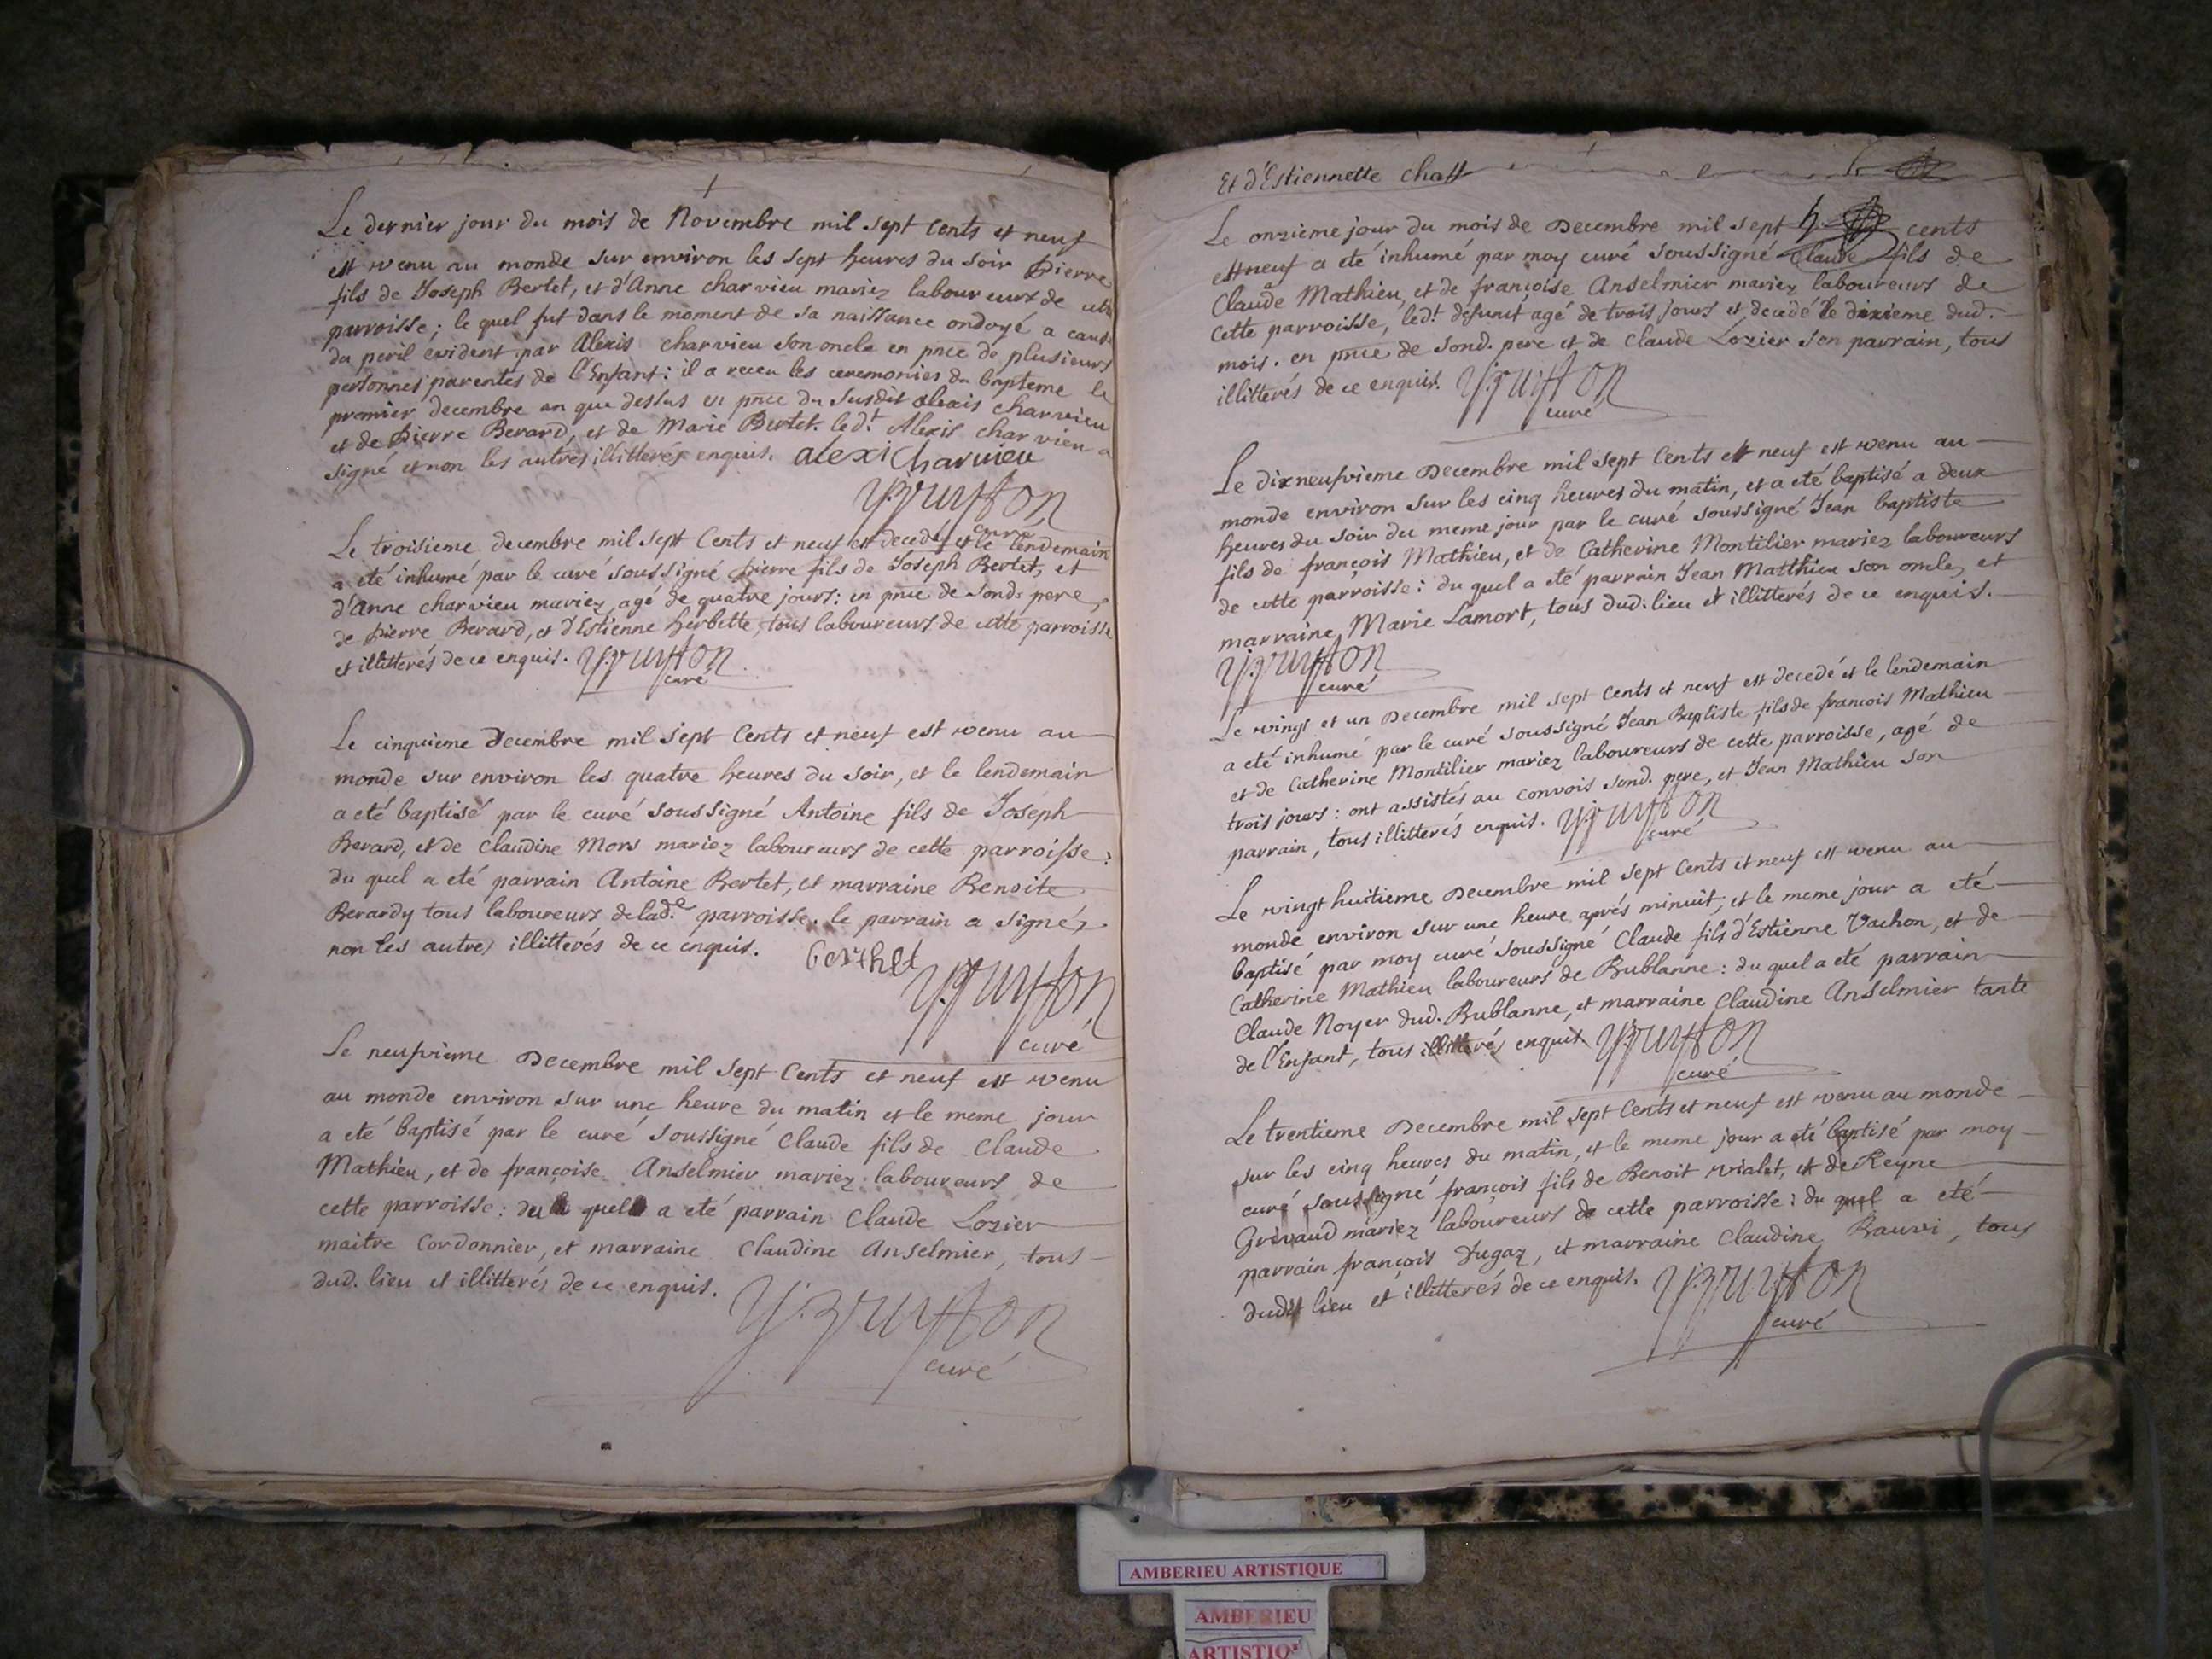 Le dernier jour du mois de Novembre mil sept cents et neuf
est venu au monde sur environ les sept heures du soir Pierre
fils de Joseph Bertet, et d'Anne charvieu mariez laboureurs de cette
parroisse; le quel fut dans le moment de sa naissance ondoyé a cause
du peril évident par Alexis charvieu son oncle en pnce de plusieurs
personnes parentes de l'Enfant: il a receu les ceremonies du bapteme le
premier decembre an que dessus en pnce du susdit alexis charvieu
et de Pierre Berard, et de Marie Bertet. led.t Alexis charvieu a
signé et non les autres illitterés enquis. alexi Charvieu
curé
Le troisieme decembre mil sept Cents et neuf est decedé et le lendemain
a eté inhumé par le curé soussigné pierre fils de Joseph Bertet, et
d'Anne charvieu mariez, agé de quatre jours: en pnce de sond. pere,
de pierre Berard, et d'Estienne herbette, tous laboureurs de cette parroisse
et illitterés de ce enquis.
curé
Le cinquieme decembre mil sept Cents et neuf est venu au
monde sur environ les quatre heures du soir, et le lendemain
a eté baptisé par le curé soussigné Antoine fils de Joseph
Berard, et de claudine Mors mariez laboureurs de cette parroisse:
du quel a eté parrain Antoine Bertet, et marraine Benoite
Berardy tous laboureurs de lad.e parroisse. le parrain a signé,
non les autres illitterés de ce enquis. berthet
curé
Le neufvieme Decembre mil sept Cents et neuf est venu
au monde environ sur une heure du matin et le meme jour
a eté baptisé par le curé soussigné Claude fils de Claude
Mathieu, et de françoise Anselmier mariez laboureurs de
cette parroisse: du quel a eté parrain Claude Lozier
maitre Cordonnier, et marraine Claudine Anselmier, tous
dud. lieu et illitterés de ce enquis.
curé
Et d'Estiennette
Le onzieme jour du mois de Decembre mil sept cents
et neuf a eté inhumé par moy curé soussigné Claude fils de
Claude Mathieu, et de françoise Anselmier mariez laboureurs de
cette parroisse, led.t defunt agé de trois jours et decedé le dixieme dud.
mois. en pnce de sond. pere et de Claude Lozier son parrain, tous
illitterés de ce enquis.
curé
Le dixneufvieme Decembre mil sept Cents et neuf est venu au
monde environ sur les cinq heures du matin, et a eté baptisé a deux
heures du soir du meme jour par le curé soussigné Jean baptiste
fils de françois Mathieu, et de Catherine Montilier mariez laboureurs
de cette parroisse: du quel a eté parrain Jean Matthieu son oncle, et
marraine Marie Lamort, tous dud. lieu et illitterés de ce enquis.
curé
Le vingt et un Decembre mil sept Cents et neuf est decedé et le lendemain
a eté inhumé par le curé soussigné Jean Baptiste fils de francois Mathieu
et de Catherine Montilier mariez laboureurs de cette parroisse, agé de
trois jours: ont assistés au convois sond. pere, et Jean Mathieu son
parrain, tous illitterés enquis.
curé
Le vingt huitieme Decembre mil sept Cents et neuf est venu au
monde environ sur une heure aprés minuit, et le meme jour a eté
baptisé par moy curé soussigné Claude fils d'Estienne Vachon, et de
Catherine Mathieu laboureurs de Bublanne: du quel a eté parrain
Claude Noyer dud. Bublanne, et marraine Claudine Anselmier tante
de l'Enfant, tous illitterés enquis
curé
Le trentieme Decembre mil sept Cents et neuf est venu au monde
sur les cinq heures du matin, et le meme jour a eté baptisé par moy
curé soussigné françois fils de Benoit vialet, et de Reyne
Grivaud mariez laboureurs de cette parroisse: du quel a eté
parrain françois Dugaz, et marraine Claudine Rauvi, tous
dudit lieu et illitterés de ce enquis.
curé
AMBERIEU ARTISTIQUE
AMBERIEU
ARTISTIQ